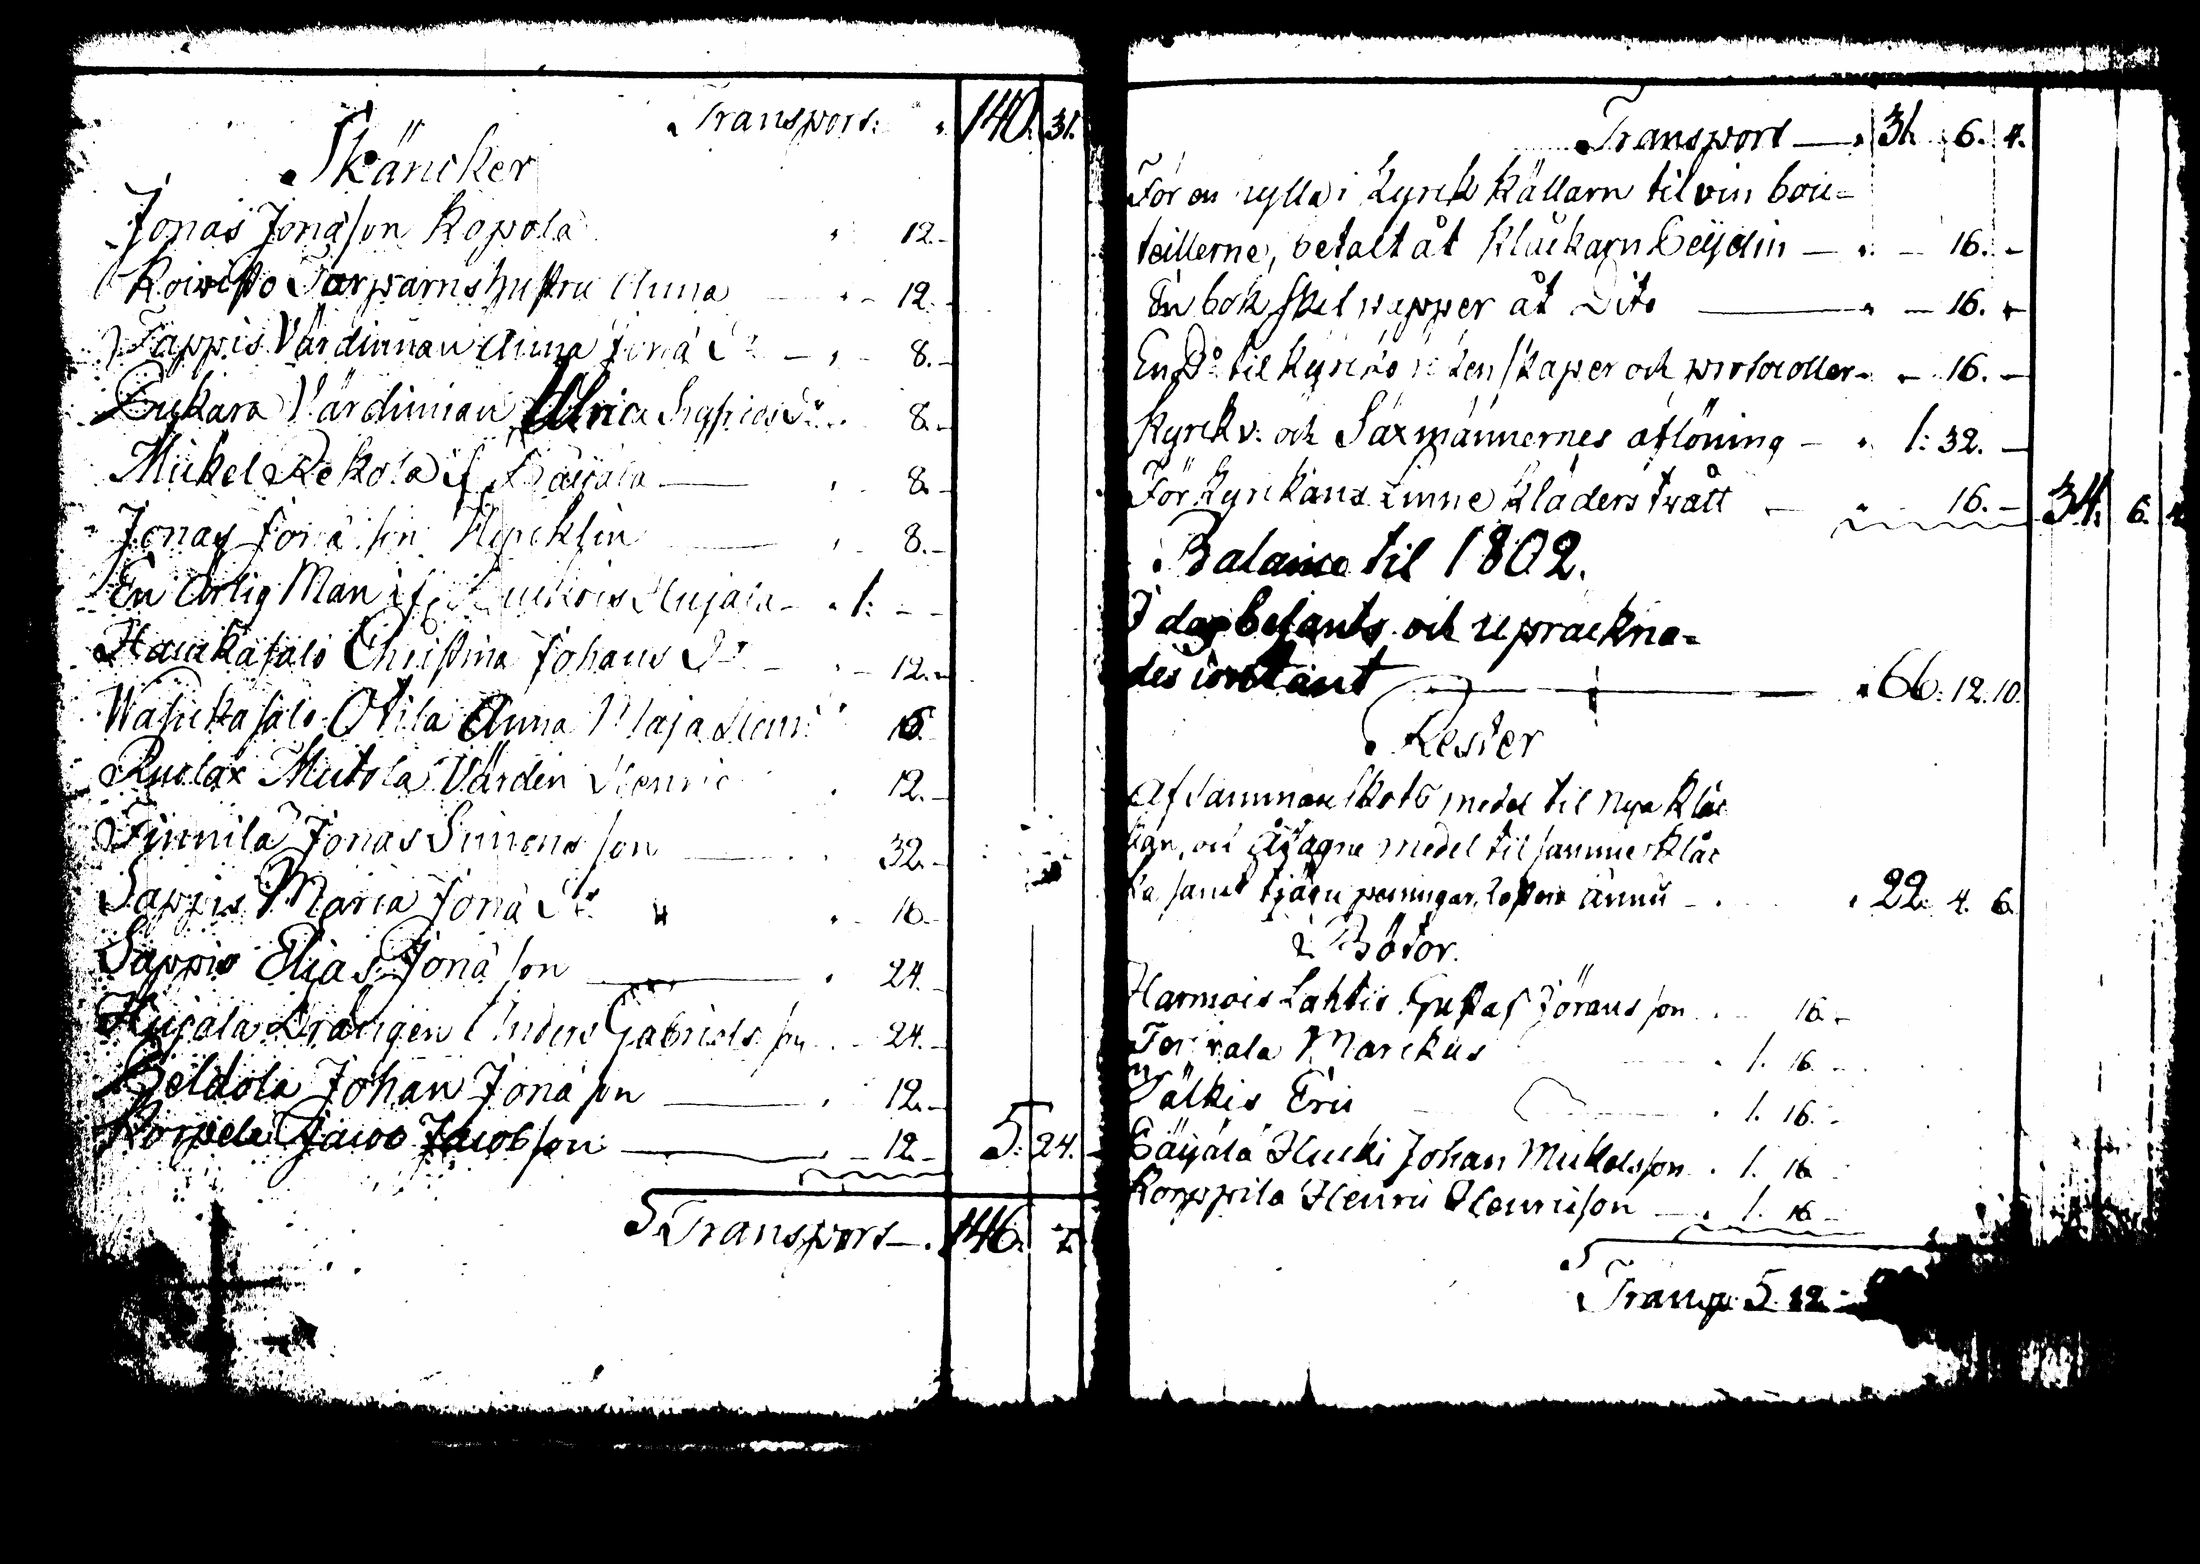 Transport: 140. 31.
Skäncker
Jonas Jona son Kopola 12.-
Koivisto Torparns hustru Anna - 12.-
Tappis Värdinnan Anna Jona Dr - 8.-
Eukara Värdinnan Ulrica Dr 8.-
Mickel Rekola if Säyälä 8.-
Jonas Jona son 8.-
En ärlig Man if Hujala 1: - -
Haukasalo Christina Johans Dr - 12.-
Wasikasalo Otila Anna Maja 16.
Ruolax Mutola Värden Henric 12.-
Finnila Jonas Simons son 32.-
Sappis Maria Jona Dr 16.-
Sappis Elias Jona son 24.-
Hujala Drängen Anders Gabriels son 24.-
Beldola Johan Jona son 12.-
Korpela Jacob Jacob son 12.- 5. 24.
Transport 146. 7.
Transport 31. 6. 4.
För en hylla i Kyrck Källarn til vin bou-
teillerne, betalt åt Klåckarn Ceijdlin - 16. -
En bok skrif papper åt Dito 16. -
En Do til Kyrcko räkenskaper och protocoller - 16. -
Kyrck v: och Säxmännernes aflöning - 1: 32. -
För Kyrckans Linne Kläders tvätt 16. - 34. 6. 4.
Balance til 1802.
I dag befants och upräckna-
des contant 66. 12. 10.
Rester
Af Sammanskots medel til nya Klåc
kan, och åtagne medel til samme Klåc
ka samt tjägu penningar, restera ännu - 22. 4. 6.
i Böter.
Harmois Lahtis Gustaf Jörans son 16. -
Marckus 1. 16. -
Pälkis Eric 1. 16. -
Säyälä Hucki Johan Mickelsson 1. 16
Korppila Henric Henricsson 1. 16 -
Transp. 5. 32. -